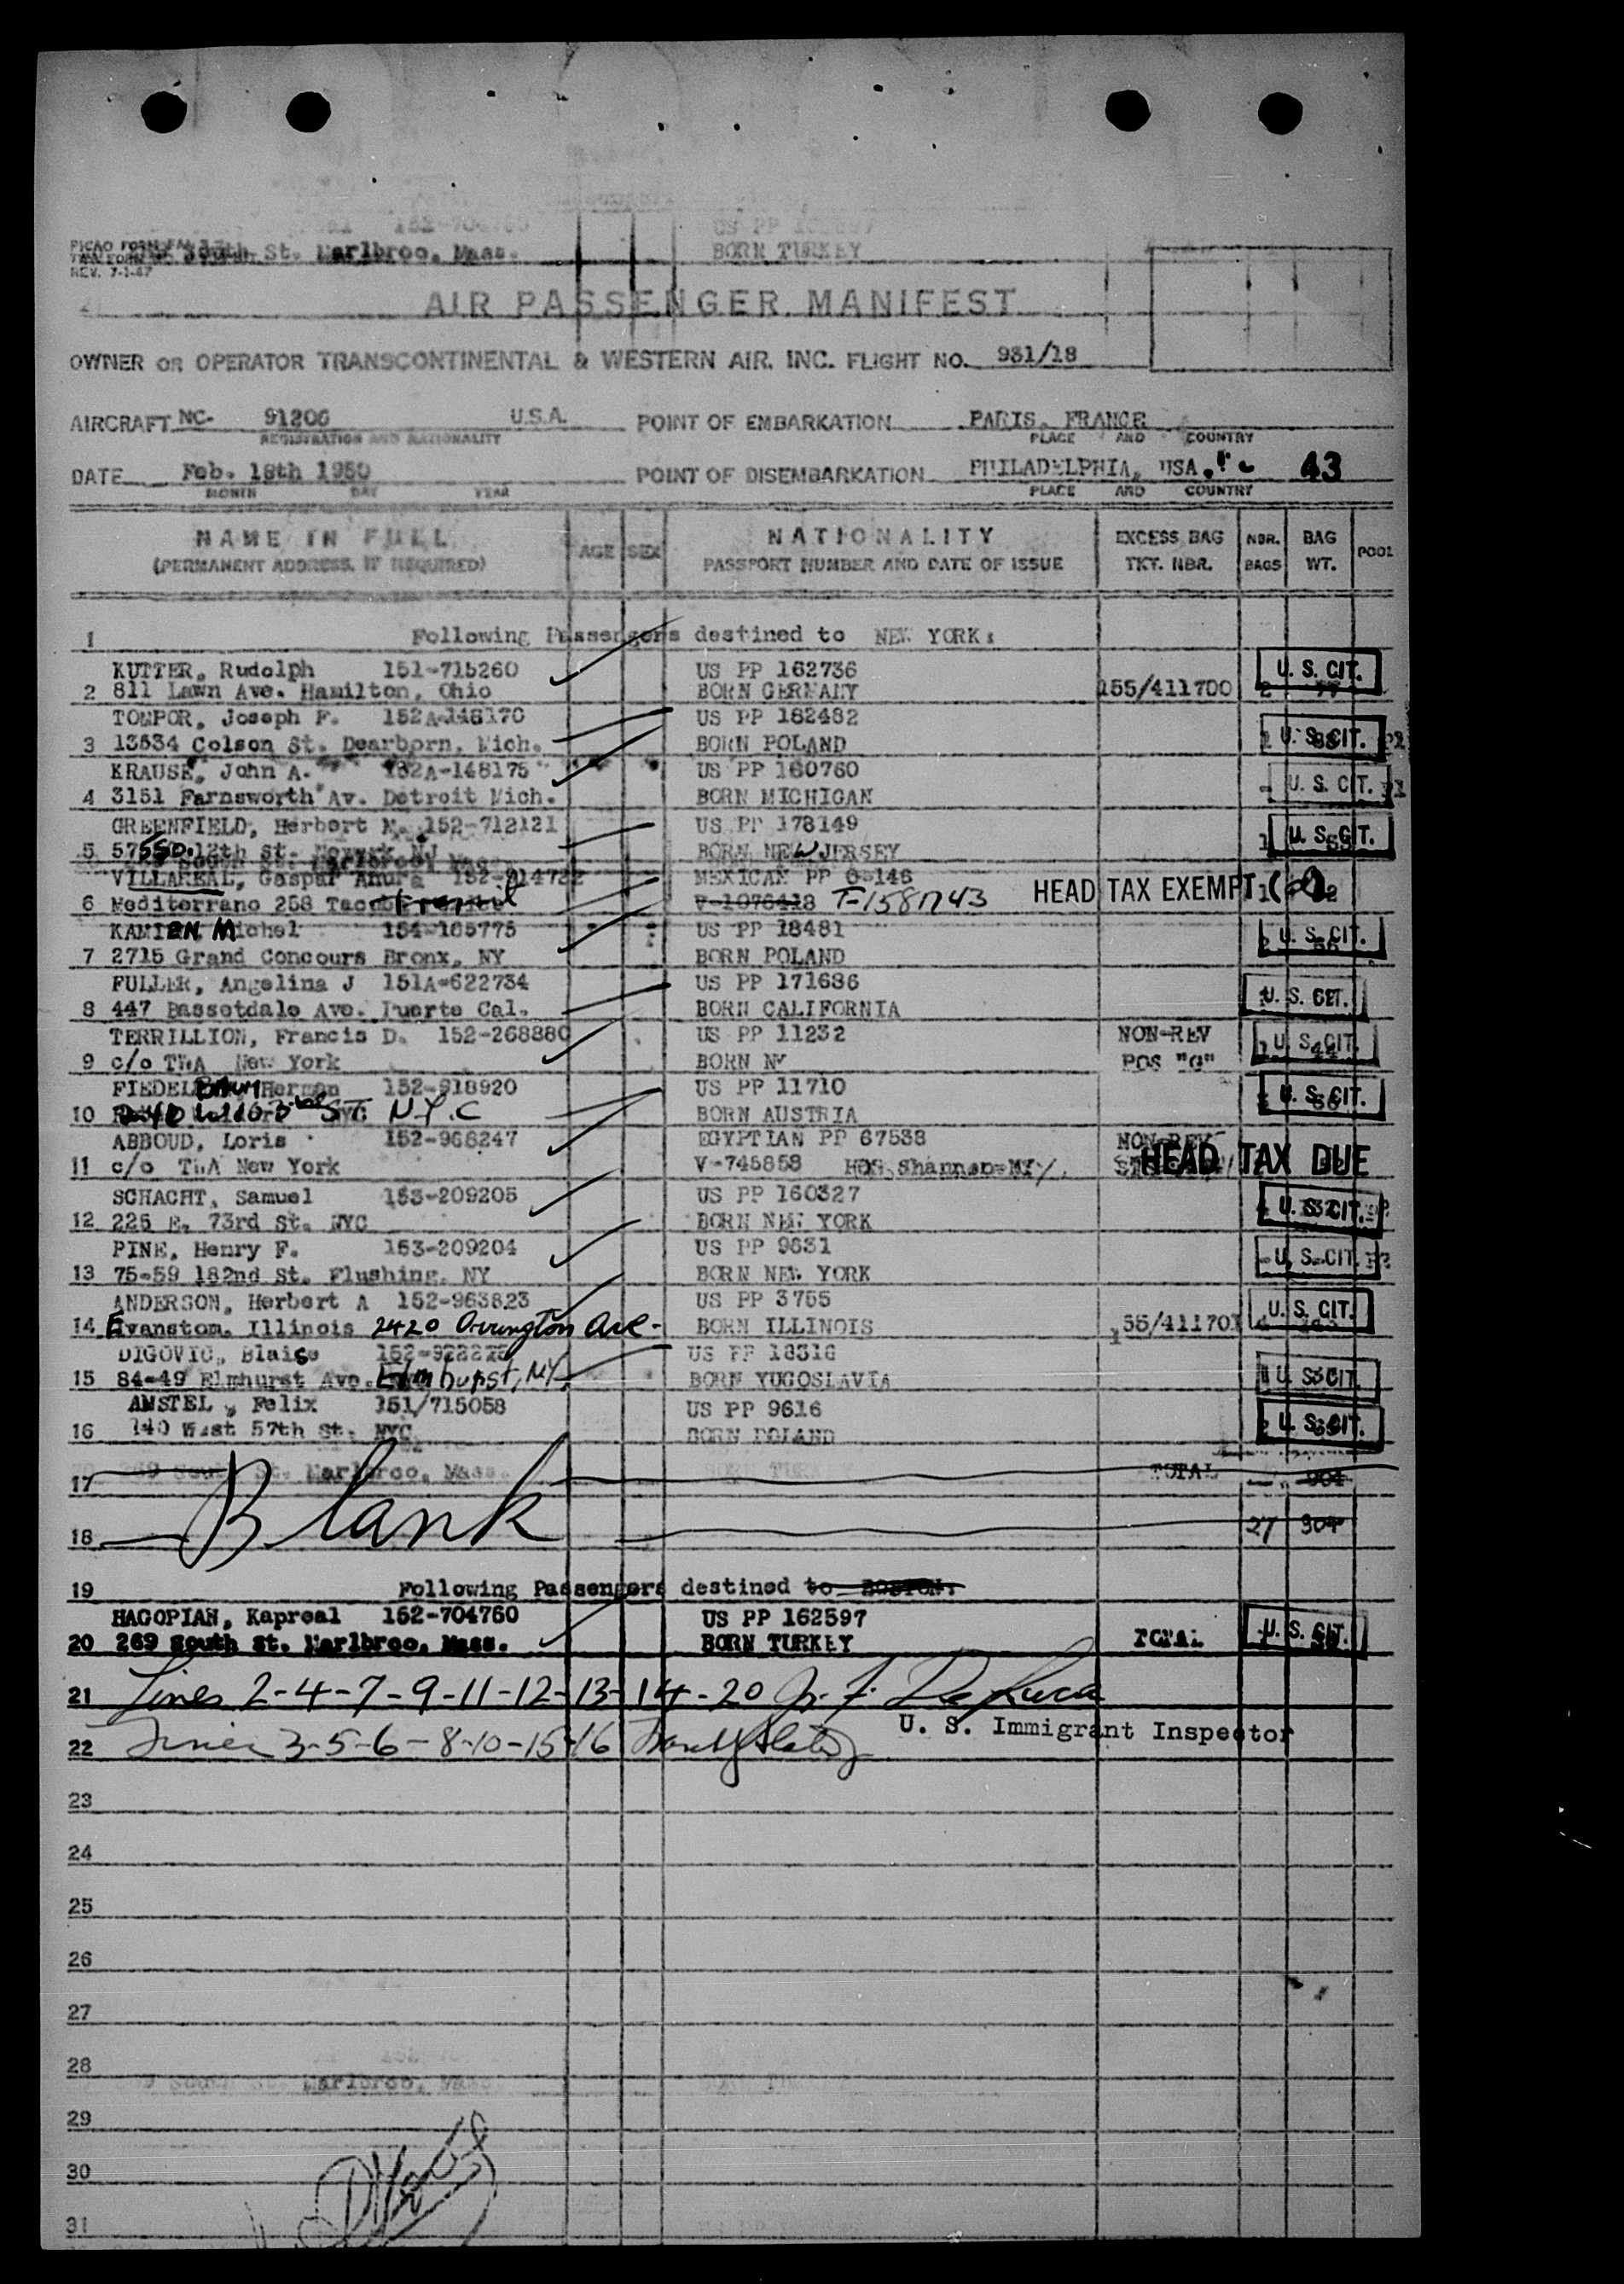 PICAO FORM
REV. 7-1-47
South St. Marlbroo, Mass.
BORN TURKEY
AIR PASSENGER MANIFEST
OWNER OR OPERATOR TRANSCONTINENTAL & WESTERN AIR. INC. FLIGHT NO. 931/18
AIRCRAFT NC- 91206 U.S.A. POINT OF EMBARKATION PARIS, FRANCE
REGISTRATION AND NATIONALITY PLACE AND COUNTRY
DATE Feb. 18th 1950 POINT OF DISEMBARKATION PHILADELPHIA, USA. 43
MONTH DAY YEAR PLACE AND COUNTRY
NAME IN FULL AGE SEX NATIONALITY EXCESS BAG NBR. BAG POOL
(PERMANENT ADDRESS, IF REQUIRED) PASSPORT NUMBER AND DATE OF ISSUE TKT. NBR. BAGS WT.
1 Following Passengers destined to NEW YORK:
KUTTER, Rudolph 151-715260 US PP 162736 U. S. CIT.
2 811 Lawn Ave. Hamilton, Ohio BORN GERMANY 155/411700 2 77
TOMPOR, Joseph F. 152A-148170 US PP 182482
3 13534 Colson St. Dearborn, Mich. BORN POLAND U. S. CIT.
KRAUSE, John A. 152A-148175 US PP 160760
4 3151 Farnsworth Av. Detroit Mich. BORN MICHIGAN U. S. CIT.
GREENFIELD, Herbert M. 152-712121 US PP 178149
5 57 SO. 12th St. Newark NJ BORN NEW JERSEY U. S. CIT.
VILLAREAL, Gaspar Anura MEXICAN PP
6 Mediterrano 258 V-1076418 T-1581743 HEAD TAX EXEMPT
KAMIEN Michel 154-165775 US PP 18481
7 2715 Grand Concours Bronx, NY BORN POLAND U. S. CIT.
FULLER, Angelina J 151A-622734 US PP 171686
8 447 Bassetdale Ave. Puerte Cal. BORN CALIFORNIA U. S. CIT.
TERRILLION, Francis D. 152-268880 US PP 11232 NON-REV
9 c/o TWA New York BORN NY POS "G" U. S. CIT.
FIEDELBAUM Herman 152-918920 US PP 11710
10 ST. N.Y.C BORN AUSTRIA U. S. CIT.
ABBOUD, Loris 152-966247 EGYPTIAN PP 67538 NON-REV
11 c/o TWA New York V-745858 HOS. Shannon-NY HEAD TAX DUE
SCHACHT, Samuel 153-209205 US PP 160327
12 226 E. 73rd St. NYC BORN NEW YORK U. S. CIT.
PINE, Henry F. 153-209204 US PP 9631
13 75-59 182nd St. Flushing, NY BORN NEW YORK U. S. CIT.
ANDERSON, Herbert A 152-963823 US PP 3755
14 Evanstom. Illinois 2420 Orrington Ave. BORN ILLINOIS 155/411701 U. S. CIT.
DIGOVIC, Blaise US PP 18318
15 84-49 Elmhurst Ave. Elmhurst, NY. BORN YUGOSLAVIA U. S. CIT.
AMSTEL, Felix 151/715058 US PP 9616
16 140 West 57th St. NYC BORN POLAND U. S. CIT.
17 269 South St. Marlbroo, Mass. TOTAL 904
Blank
18 27 904
19 Following Passengers destined to BOSTON:
HAGOPIAN, Kapreal 152-704760 US PP 162597
20 269 South St. Marlbroo, Mass. BORN TURKEY TOTAL U. S. CIT.
21 Lines 2-4-7-9-11-12-13-14-20
U. S. Immigrant Inspector
22 Lines 3-5-6-8-10-15-16
23
24
25
26
27
28
South St. Marlbroo, Mass
29
30
31